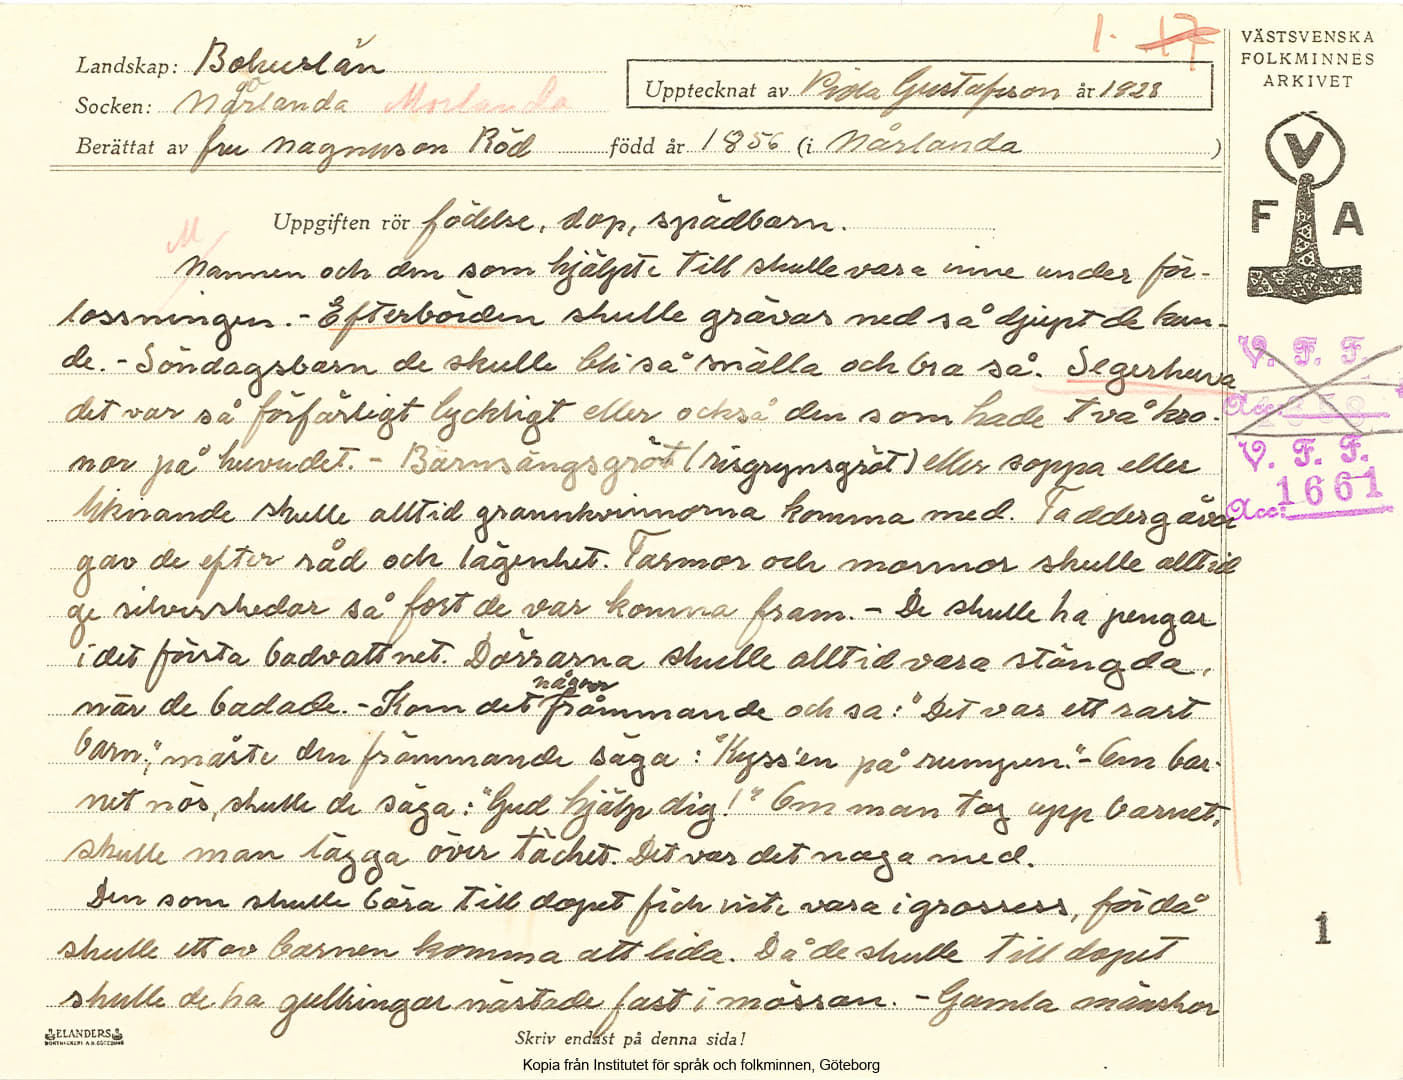 1. 17
VÄSTSVENSKA
FOLKMINNES
ARKIVET
Landskap: Bohuslän
Socken: Mårlanda Morlanda
Upptecknat av Frida Gustafsson år 1928
Berättat av fru Magnuson Röd född år 1856 (i Mårlanda)
V
F A
Uppgiften rör födelse, dop, spädbarn.
M
Mannen och den som hjälpte till skulle vara inne under för-
lossningen. - Efterbörden skulle grävas ned så djupt de kun-
de. - Söndagsbarn de skulle bli så snälla och bra så. Segerhuva
det var så förfärligt lyckligt eller också den som hade två kro-
nor på huvudet. - Barnsängsgröt (risgrynsgröt) eller soppa eller
liknande skulle alltid grannkvinnorna komma med. Faddergåva
gav de efter råd och lägenhet. Farmor och mormor skulle alltid
ge silverskedar så fort de var komna fram. - De skulle ha pengar
i det första badvattnet. Dörrarna skulle alltid vara stängda,
när de badade. - Kom det någon främmande och sa: "Det var ett rart
barn", måste den främmande säga: "Kyss'en på rumpen." - Om bar-
net nös, skulle de säga: "Gud hjälp dig!" Om man tog upp barnet,
skulle man lägga över täcket. Det var det noga med.
Den som skulle bära till dopet fick inte vara i grossess, för då
skulle ett av barnen komma att lida. Då de skulle till dopet
skulle de ha gullringar nästade fast i mössan. - Gamla mänskor
V. F. F.
Acc:
V. F. F.
Acc: 1661
1
ELANDERS
BOKTRYCKERI A.B. GÖTEBORG
Skriv endast på denna sida!
Kopia från Institutet för språk och folkminnen, Göteborg